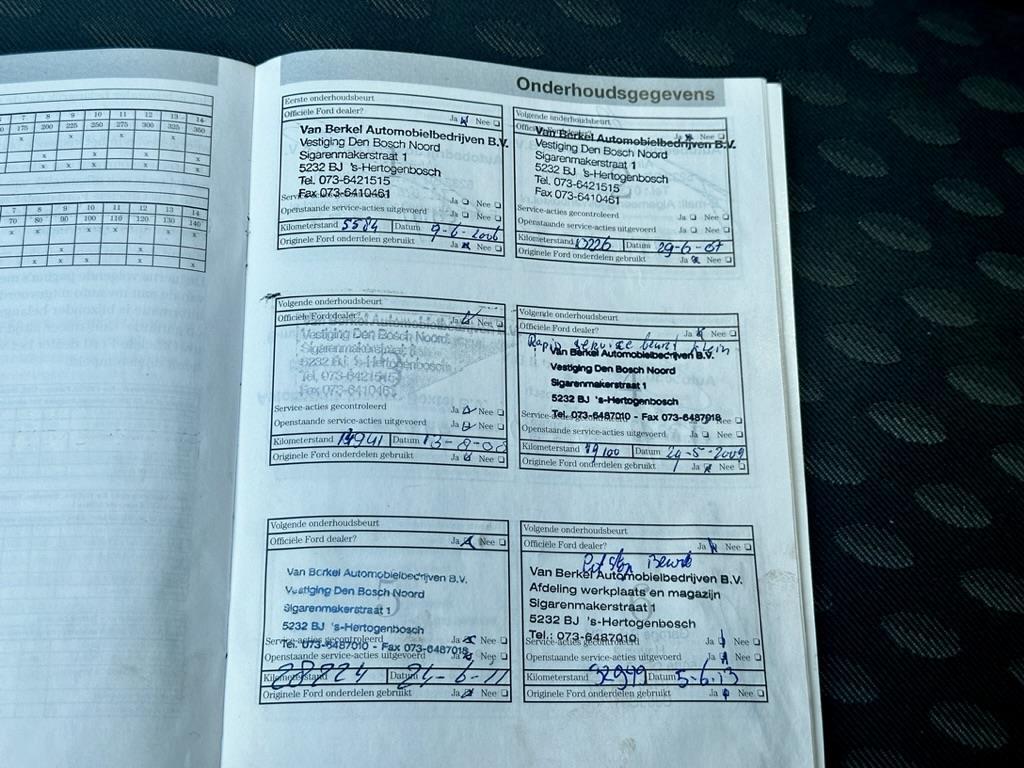 7 8 9 10 11 12 13 14
175 200 225 250 275 300 325 350
x x
x x
x x x
7 8 9 10 11 12 13 14
70 80 90 100 110 120 130 140
x x x x
x x
x x x x
Onderhoudsgegevens
Eerste onderhoudsbeurt
Officiële Ford dealer? Ja Nee
Van Berkel Automobielbedrijven B.V.
Vestiging Den Bosch Noord
Sigarenmakerstraat 1
5232 BJ 's-Hertogenbosch
Tel. 073-6421515
Fax 073-6410461
Ja Nee
Openstaande service-acties uitgevoerd Ja Nee
Kilometerstand 5584 Datum 9-6-2006
Originele Ford onderdelen gebruikt Ja Nee
Volgende onderhoudsbeurt
Ja Nee
Van Berkel Automobielbedrijven B.V.
Vestiging Den Bosch Noord
Sigarenmakerstraat 1
5232 BJ 's-Hertogenbosch
Tel. 073-6421515
Fax 073-6410461
Service-acties gecontroleerd Ja Nee
Openstaande service-acties uitgevoerd Ja Nee
Kilometerstand Datum 29-6-07
Originele Ford onderdelen gebruikt Ja Nee
Volgende onderhoudsbeurt
Officiële Ford dealer? Ja Nee
Vestiging Den Bosch Noord
Sigarenmakerstraat
5232 BJ 's-Hertogenbosch
Tel. 073-6421515
Fax 073-6410461
Service-acties gecontroleerd Ja Nee
Openstaande service-acties uitgevoerd Ja Nee
Kilometerstand Datum 13-8-08
Originele Ford onderdelen gebruikt Ja Nee
Volgende onderhoudsbeurt
Officiële Ford dealer? Ja Nee
Rapid service beurt klein
Van Berkel Automobielbedrijven B.V.
Vestiging Den Bosch Noord
Sigarenmakerstraat 1
5232 BJ 's-Hertogenbosch
Tel. 073-6487010 - Fax 073-6487018
Openstaande service-acties uitgevoerd Ja Nee
Kilometerstand 19100 Datum 29-5-2009
Originele Ford onderdelen gebruikt Ja Nee
Volgende onderhoudsbeurt
Officiële Ford dealer? Ja Nee
Van Berkel Automobielbedrijven B.V.
Vestiging Den Bosch Noord
Sigarenmakerstraat 1
5232 BJ 's-Hertogenbosch
Service-acties gecontroleerd Ja Nee
Tel. 073-6487010 - Fax 073-6487018
Openstaande service-acties uitgevoerd Ja Nee
Kilometerstand 28824 Datum 24-6-11
Originele Ford onderdelen gebruikt Ja Nee
Volgende onderhoudsbeurt
Officiële Ford dealer? Ja Nee
Beurt
Van Berkel Automobielbedrijven B.V.
Afdeling werkplaats en magazijn
Sigarenmakerstraat 1
5232 BJ 's-Hertogenbosch
Tel.: 073-6487010
Service-acties gecontroleerd Ja Nee
Openstaande service-acties uitgevoerd Ja Nee
Kilometerstand 32949 Datum 5-6-13
Originele Ford onderdelen gebruikt Ja Nee